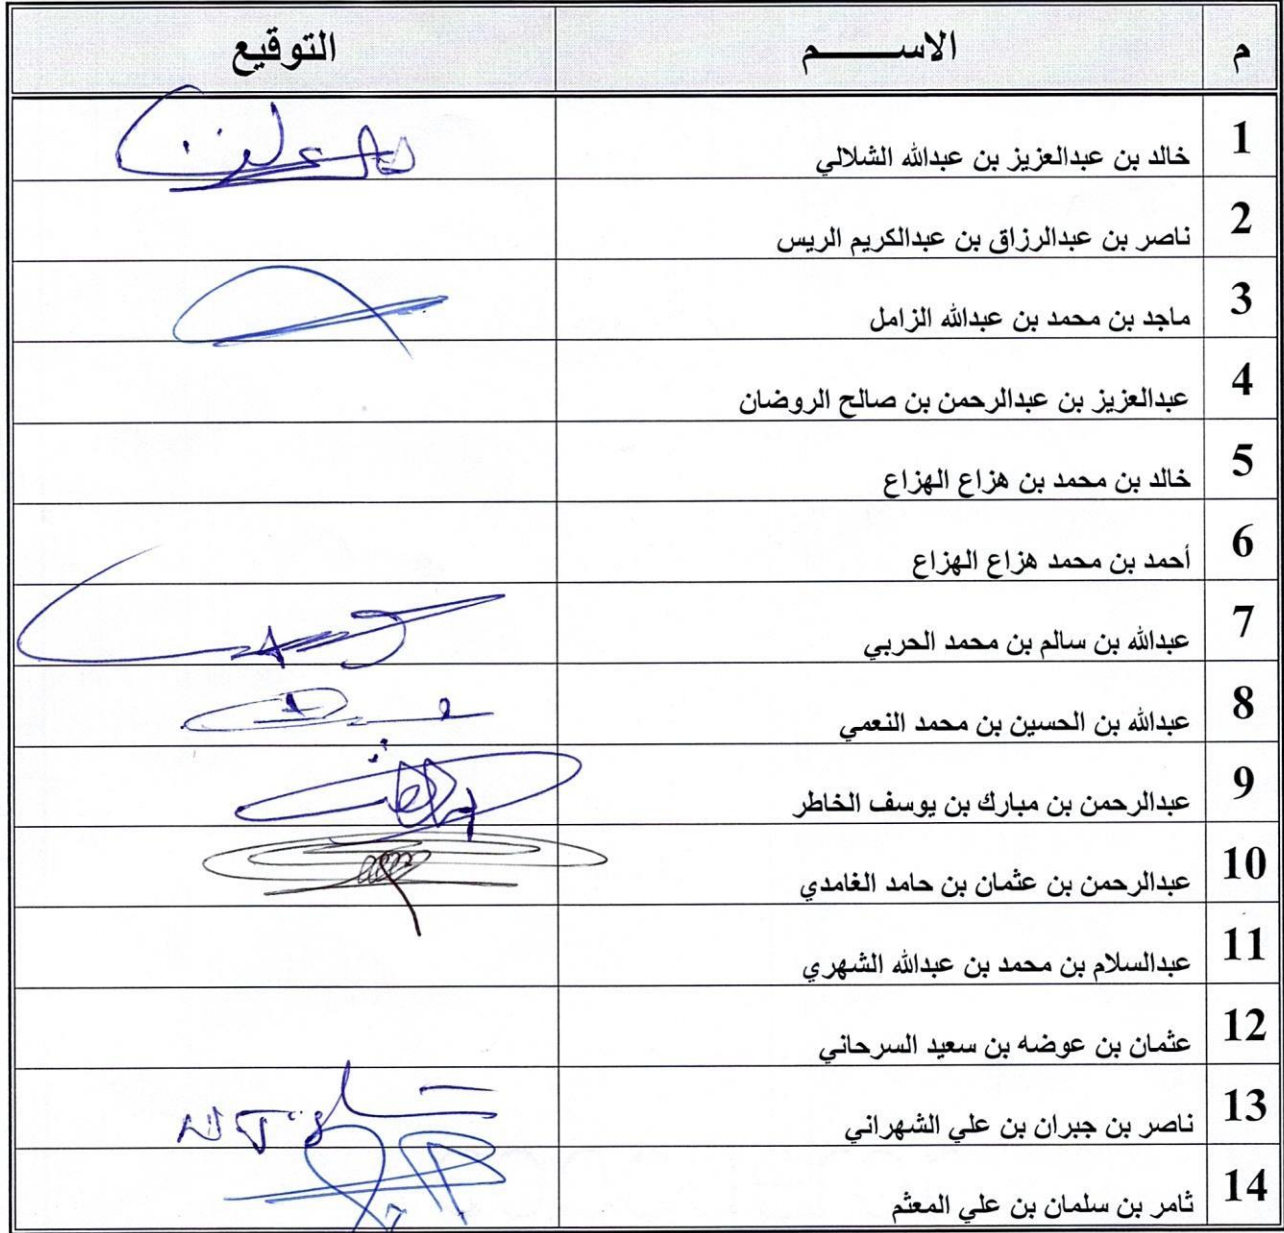 م الاســـــــم التوقيع
1 خالد بن عبدالعزيز بن عبدالله الشلالي
2 ناصر بن عبدالرزاق بن عبدالكريم الريس
3 ماجد بن محمد بن عبدالله الزامل
4 عبدالعزيز بن عبدالرحمن بن صالح الروضان
5 خالد بن محمد بن هزاع الهزاع
6 أحمد بن محمد هزاع الهزاع
7 عبدالله بن سالم بن محمد الحربي
8 عبدالله بن الحسين بن محمد النعمي
9 عبدالرحمن بن مبارك بن يوسف الخاطر
10 عبدالرحمن بن عثمان بن حامد الغامدي
11 عبدالسلام بن محمد بن عبدالله الشهري
12 عثمان بن عوضه بن سعيد السرحاني
13 ناصر بن جبران بن علي الشهراني
14 ثامر بن سلمان بن علي المعثم